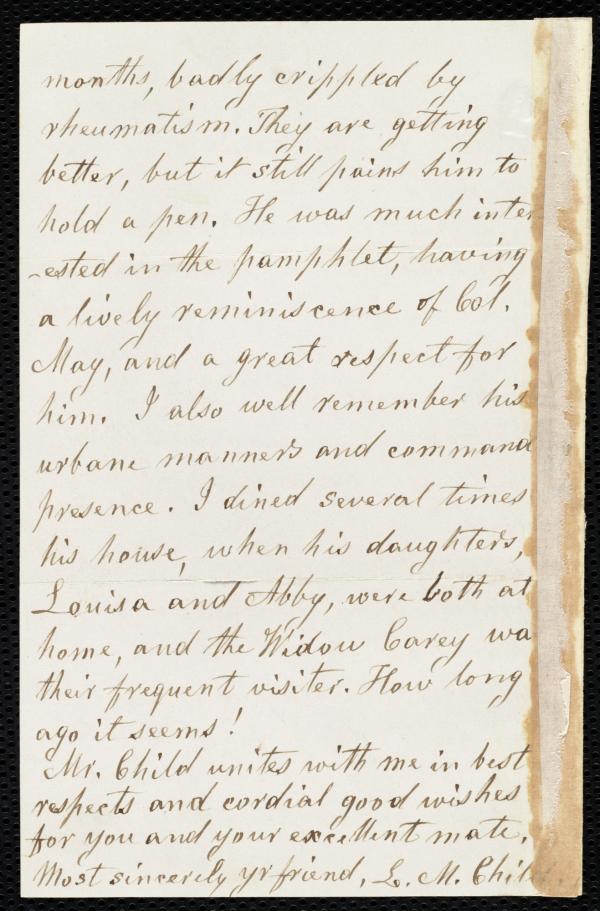 months, badly crippled by
rheumatism. They are getting
better, but it still pains him to
hold a pen. He was much inter
-ested in the pamphlet, having
a lively reminiscence of Col.
May, and a great respect for
him. I also well remember his
urbane manners and command
presence. I dined several times
his house, when his daughters,
Louisa and Abby, were both at
home, and the Widow Carey wa
their frequent visiter. How long
ago it seems!
Mr. Child unites with me in best
respects and cordial good wishes
for you and your excellent mate.
Most sincerely yr friend, L. M. Child.